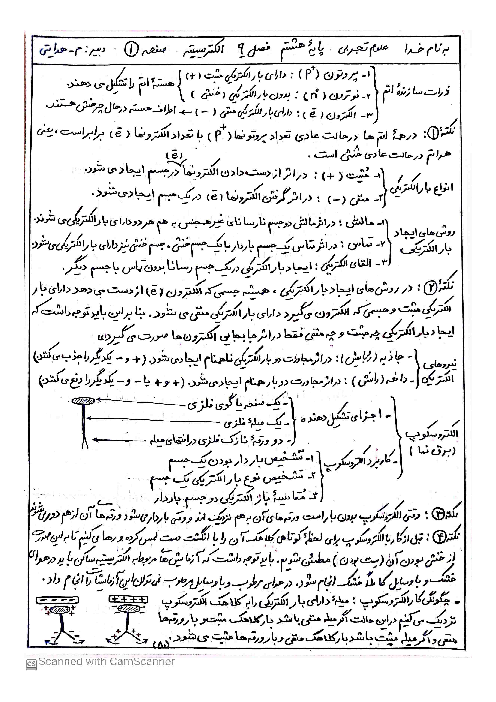 به نام خدا علوم تجربی . پایهٔ هشتم فصل ۹ الکتریسیته . صفحه ① دبیر: م - هدایتی
۱- پروتون (P⁺) : دارای بار الکتریکی مثبت (+)
ذرات سازندهٔ اتم ۲- نوترون (n°) : بدون بار الکتریکی (خنثی) هستهٔ اتم را تشکیل می دهند.
۳- الکترون (ē) : دارای بار الکتریکی منفی (-) ← اطراف هسته در حال چرخش هستند.
نکتهٔ ①: در همهٔ اتم ها در حالت عادی تعداد پروتونها (P⁺) با تعداد الکترونها (ē) برابر است، یعنی
هر اتم در حالت عادی خنثی است.
انواع بار الکتریکی ۱- مثبت (+) : در اثر از دست دادن الکترونها (ē) در جسم ایجاد می شود.
۲- منفی (-) : در اثر گرفتن الکترونها (ē) در یک جسم ایجاد می شود.
روش های ایجاد بار الکتریکی ۱- مالش : در اثر مالش دو جسم نارسانای غیر هم جنس به هم هر دو دارای بار الکتریکی می شوند.
۲- تماس : در اثر تماس یک جسم باردار با یک جسم خنثی، جسم خنثی نیز دارای بار الکتریکی می شود
۳- القای الکتریکی : ایجاد بار الکتریکی در یک جسم رسانا بدون تماس با جسم دیگر.
نکتهٔ ②: در روش های ایجاد بار الکتریکی، همیشه جسمی که الکترون (ē) از دست می دهد دارای بار
الکتریکی مثبت و جسمی که الکترون می گیرد دارای بار الکتریکی منفی می شود. بنابراین باید توجه داشت که
ایجاد بار الکتریکی چه مثبت و چه منفی فقط در اثر جابجایی الکترون ها صورت می گیرد.
نیروهای الکتریکی - جاذبه (ربایش): در اثر مجاورت دو بار الکتریکی ناهمنام ایجاد می شود. (+ و - یکدیگر را جذب می کنند)
- دافعه (رانش) : در اثر مجاورت دو بار همنام ایجاد می شود. (+ و + یا - و - یکدیگر را دفع می کنند)
الکتروسکوپ (برق نما) - اجزای تشکیل دهنده - یک صفحه یا گوی فلزی
- یک میلهٔ فلزی
- دو ورقهٔ نازک فلزی در انتهای میله
- کاربرد الکتروسکوپ ۱- تشخیص باردار بودن یک جسم
۲- تشخیص نوع بار الکتریکی یک جسم
۳- مقایسهٔ بار الکتریکی دو جسم باردار
نکتهٔ ③: وقتی الکتروسکوپ بدون بار است ورقه های آن به هم نزدیک اند و وقتی باردار می شود ورقه ها از هم دور می شوند
نکتهٔ ④: قبل از کار با الکتروسکوپ برای لحظهٔ کوتاهی کلاهک آن را با انگشت دست لمس کرده و رها می کنیم تا به این صورت
از خنثی بودن آن مطمئن شویم. باید توجه داشت که آزمایش های مربوط به الکتریسیته ساکن باید در هوای
خشک و با وسایل کاملاً خشک انجام شود. در هوای مرطوب و با وسایل مرطوب نمی توان این آزمایشات را انجام داد.
- چگونگی کار الکتروسکوپ : میلهٔ دارای بار الکتریکی را به کلاهک الکتروسکوپ
نزدیک می کنیم در این حالت اگر میله منفی باشد بار کلاهک مثبت و بار ورقه ها
منفی و اگر میله مثبت باشد بار کلاهک منفی و بار ورقه ها مثبت می شود.
Scanned with CamScanner